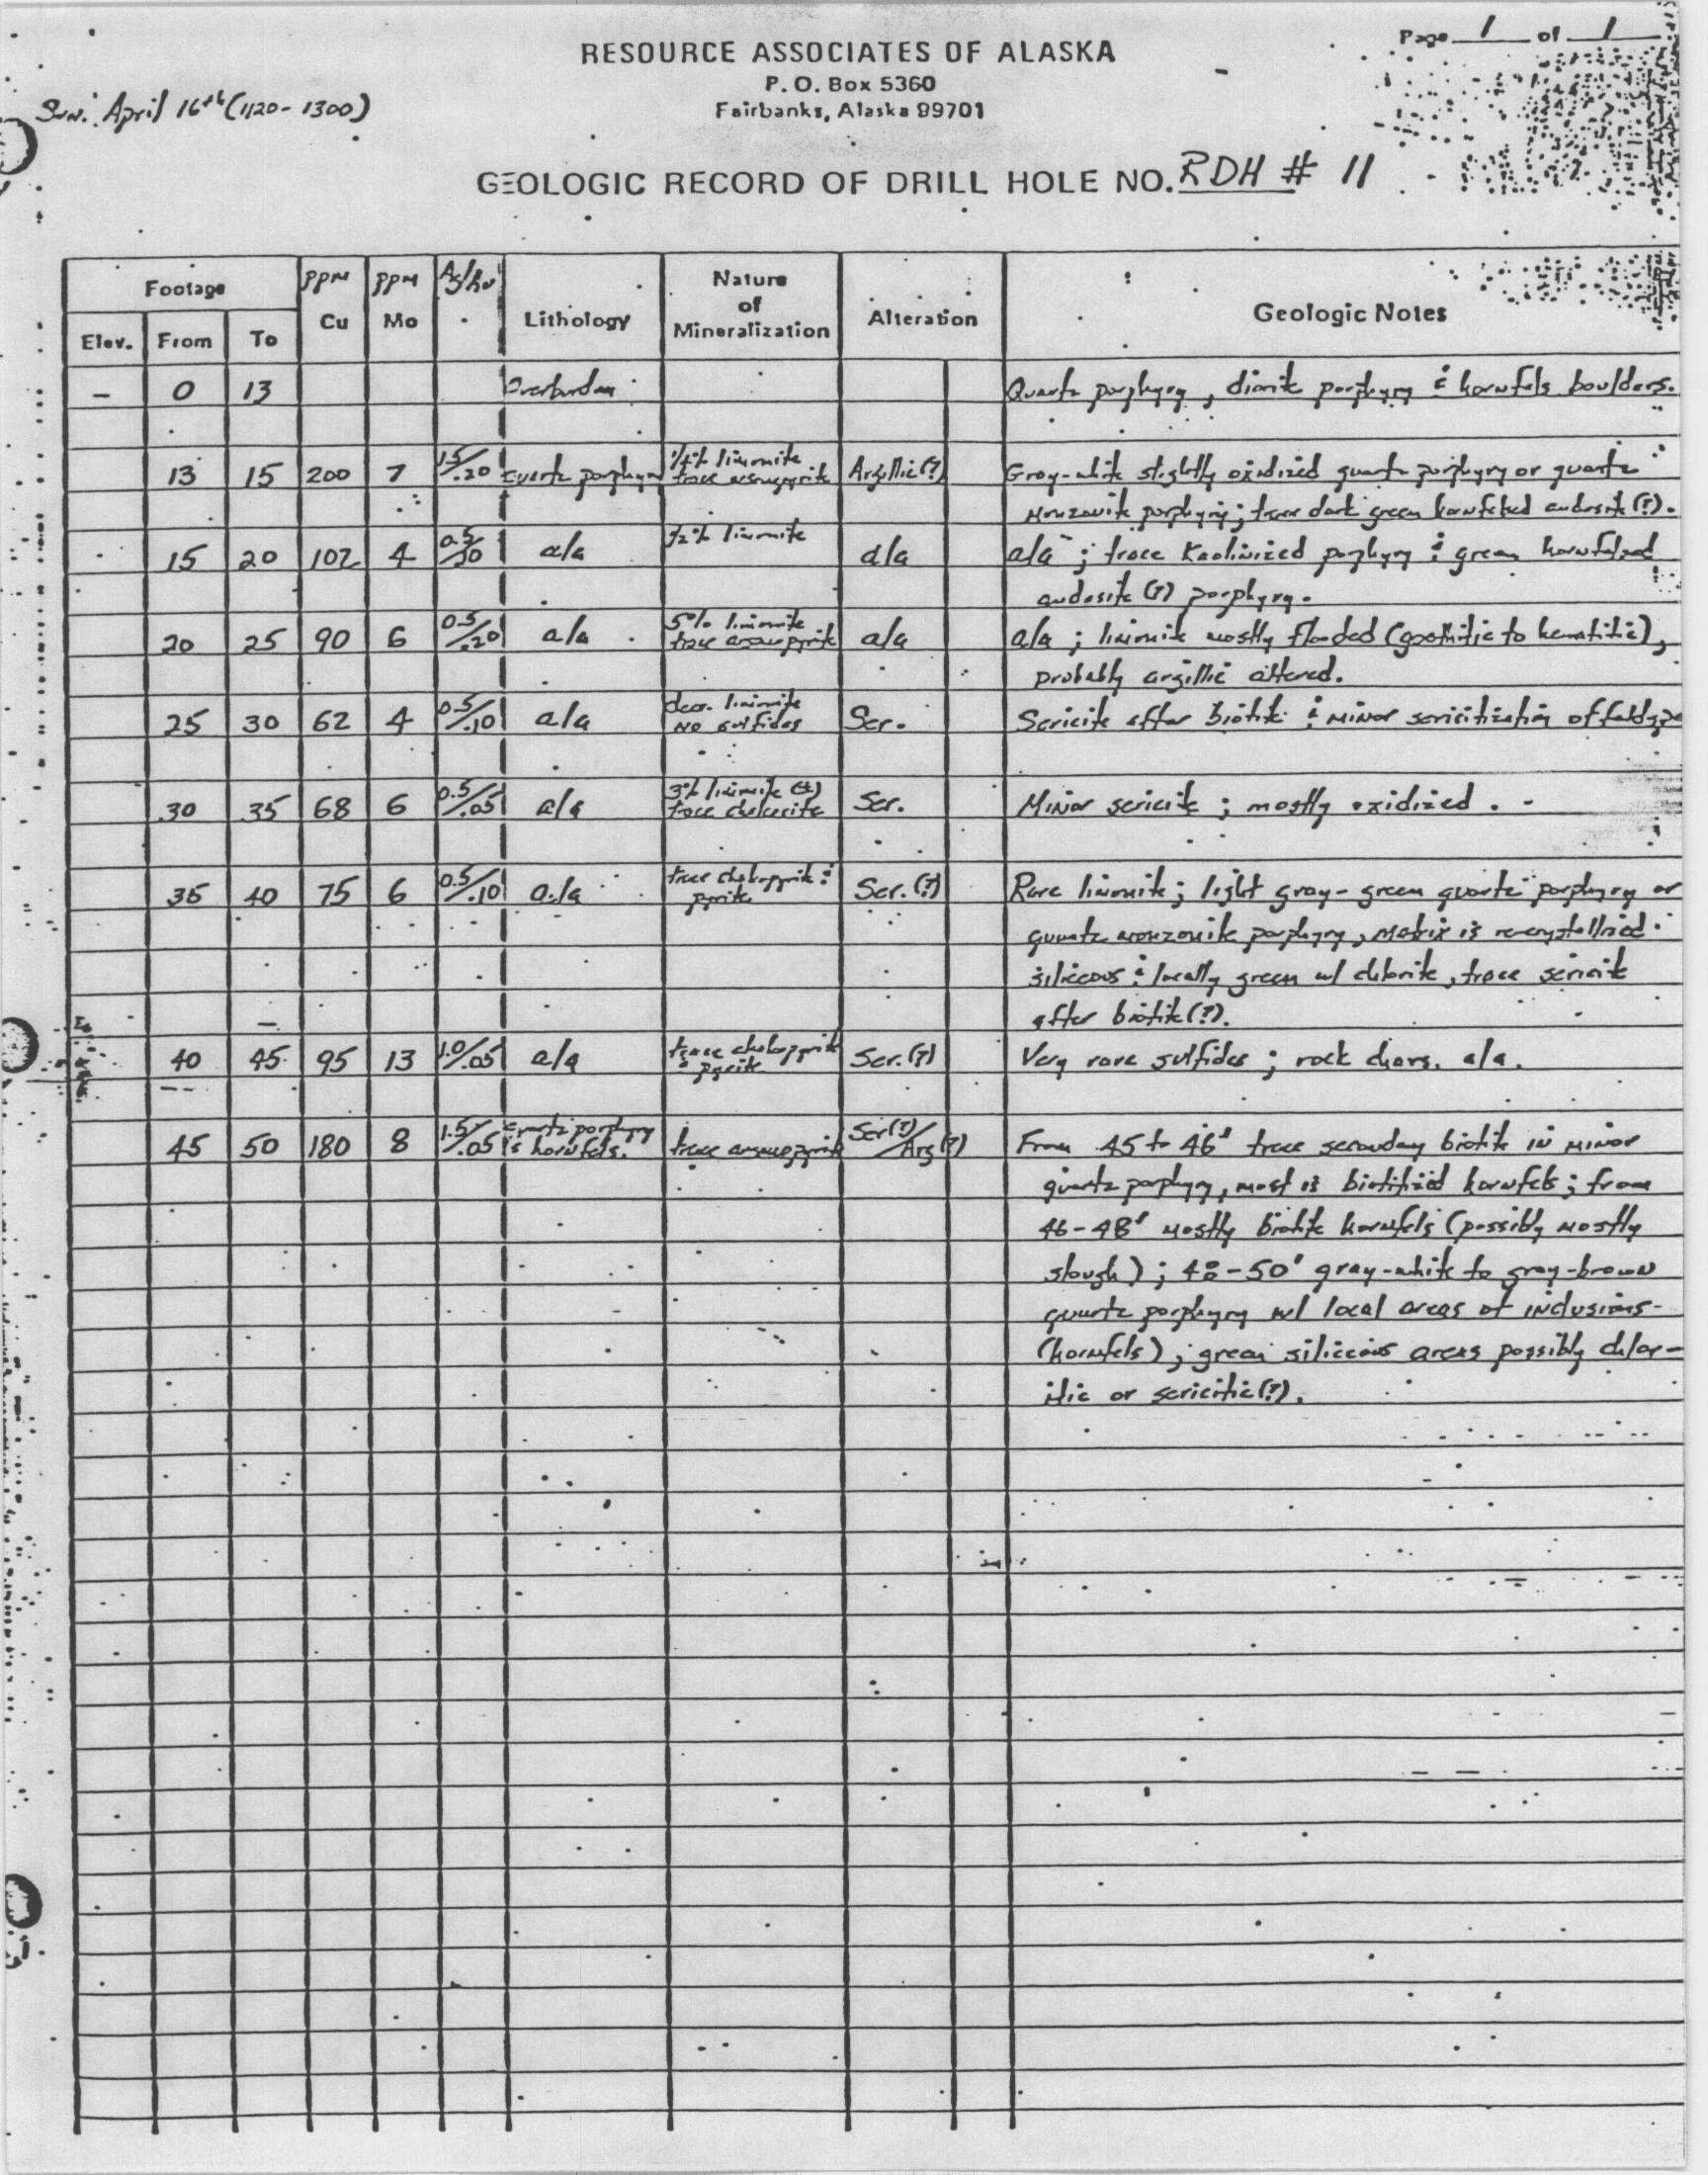 Page 1 of 1
RESOURCE ASSOCIATES OF ALASKA
P. O. Box 5360
Fairbanks, Alaska 99701
Sun. April 16th (1120 - 1300)
GEOLOGIC RECORD OF DRILL HOLE NO. RDH # 11
Footage
Elev. From To
ppm Cu
ppm Mo
Ag/Au
Lithology
Nature of Mineralization
Alteration
Geologic Notes
- 0 13 Overburden Quartz porphyry, diorite porphyry & hornfels boulders.
13 15 200 7 1.5/.20 Quartz porphyry 1/2% limonite trace arsenopyrite Argillic(?) Gray-white slightly oxidized quartz porphyry or quartz
monzonite porphyry; trace dark green hornfelsed andesite(?).
15 20 102 4 0.5/ a/a 1/2% limonite a/a a/a; trace Kaolinized porphyry & green hornfelsed
andesite(?) porphyry.
20 25 90 6 0.5/.20 a/a 5% limonite trace arsenopyrite a/a a/a; limonite mostly flooded (goethitic to hematitic),
probably argillic altered.
25 30 62 4 0.5/.10 a/a decr. limonite no sulfides Ser. Sericite after biotite & minor sericitization of
30 35 68 6 0.5/.05 a/a 3% limonite trace chalcocite Ser. Minor sericite; mostly oxidized.
35 40 75 6 0.5/.10 a/a trace chalcopyrite & pyrite Ser.(?) Rare limonite; light gray-green quartz porphyry or
quartz monzonite porphyry, matrix is recrystallized
siliceous & locally green w/ chlorite, trace sericite
after biotite(?).
40 45 95 13 1.0/.05 a/a trace chalcopyrite & pyrite Ser.(?) Very rare sulfides; rock chars. a/a.
45 50 180 8 1.5/.05 Quartz porphyry & hornfels. trace arsenopyrite Ser(?)/Arg(?) From 45 to 46' trace secondary biotite in minor
quartz porphyry, most is biotitized hornfels; from
46-48' mostly biotite hornfels (possibly mostly
slough); 48-50' gray-white to gray-brown
quartz porphyry w/ local areas of inclusions
(hornfels); green siliceous areas possibly chlor-
itic or sericitic(?).